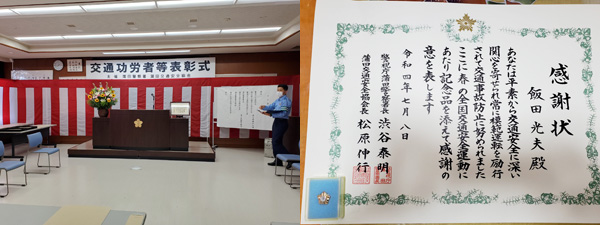 交通功労者等表彰式
感謝状
飯田光夫殿
あなたは平素から交通安全に深い
関心を寄せられ常に模範運転を励行
されて交通事故防止に努められました
ここに春の全国交通安全運動に
あたり記念品を添えて感謝の
意を表します
令和四年七月八日
警視庁蒲田警察署長 渋谷泰明
蒲田交通安全協会長 松原伸行